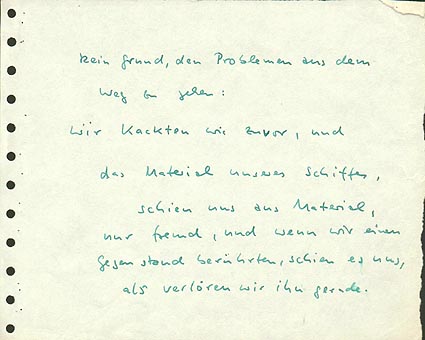 kein Grund, den Problemen aus dem
Weg zu gehen:
Wir Kackten wie zuvor, und
das Material unseres Schiffes,
schien uns aus Material,
nur fremd, und wenn wir einen
Gegenstand berührten, schien es uns,
als verlören wir ihn gerade.